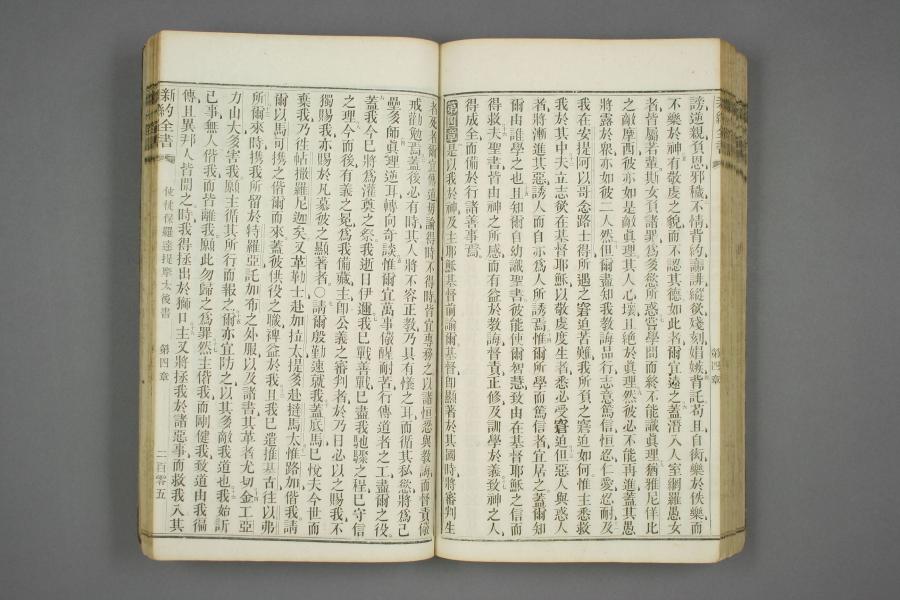 謗逆親負恩邪穢不情背約讒誹縱欲殘刻娼嫉背託苟且自衒樂於佚樂而
不樂於神有敬虔之貌而不認其德如此者爾宜遠之蓋潛入人室網羅愚女
者皆屬若輩斯女負諸罪爲多慾所惑嘗學問而終不能識眞理猶雅尼佯比
之敵摩西彼亦如是敵眞理其人心壞且絕於眞理然彼必不能再進蓋其愚
將露於衆亦如彼二人然但爾盡知我敎誨品行志意篤信恒忍仁愛忍耐及
我在安提阿以哥念路士得所遇之窘迫苦難我所負之窘迫如何惟主悉救
我於其中夫立志欲在基督耶穌以敬虔度生者悉必受窘迫但惡人與惑人
者將漸進其惡誘人而自亦爲人所誘焉惟爾所學而篤信者宜居之蓋爾知
爾由誰學之也且知爾自幼識聖書彼能使爾智慧致由在基督耶穌之信而
得救夫聖書皆由神之所感而有益於敎誨督責正修及訓學於義致神之人
得成全而備於行諸善事焉
第四章是以我於神及主耶穌基督前諭爾基督卽顯著於其國時將審判生
者死者爾宜傳道毋論得時不得時皆宜專務之以諸恒忍與敎誨而督責儆
戒勸勉焉蓋後必有時其人將不容正敎乃具有慻之耳而循其私慾將爲己
壘多師眞理逆耳轉向奇談惟爾宜萬事儆醒耐苦行傳道者之工盡爾之役
蓋我今已將爲灌奠之祭我逝日伊邇我已戰善戰已盡我馳驟之程已守信
之理今而後有義之冕爲我備藏主卽公義之審判者於乃日必以之賜我不
獨賜我亦賜於凡慕彼之顯著者○請爾殷勤速就我蓋底馬已悅夫今世而
棄我乃往帖撒羅尼迦矣又革勒士赴加拉太提多赴撻馬太惟路加偕我請
爾以馬可携之偕爾而來蓋彼供役之職裨益於我且我已遣推基古往以弗
所爾來時携我所留於特羅亞託加布之外服以及諸書其革者尤切金工亞
力山大多害我願主循其所行而報之爾亦宜防之以其多敵我道也我始訴
己事無人偕我而皆離我願此勿歸之爲罪然主偕我而剛健我致道由我徧
傳且異邦人皆聞之時我得拯出於獅口主又將拯我於諸惡事而救我入其
新約全書　使徒保羅達提摩太後書　第四章　二百零五
第四章